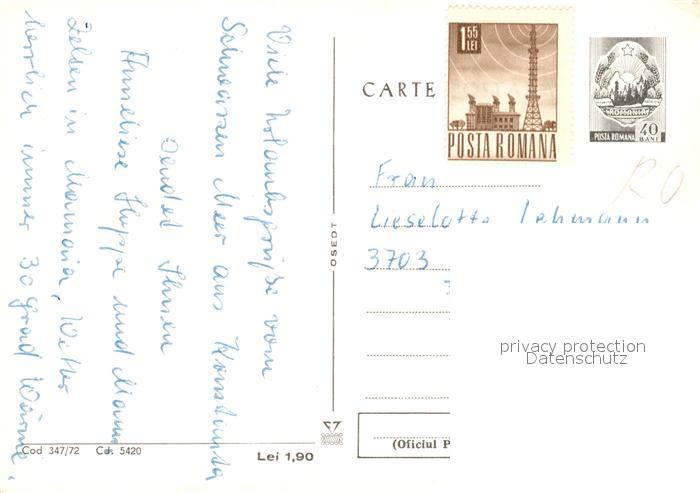 Viele Urlaubsgrüße vom
Schwarzen Meer aus Konstanta
sendet Ihnen
Anneliese Huppe und Mann
Zelten in Mamaia, Wetter
herrlich immer 30 Grad Wärme.
Cod 347/72 Cd. 5420
Lei 1,90
OSEDT
CARTE
1,55
LEI
POSTA ROMANA
POSTA ROMANA 40
BANI
RO
Frau
Lieselotte Lehmann
3703
privacy protection
Datenschutz
(Oficiul P